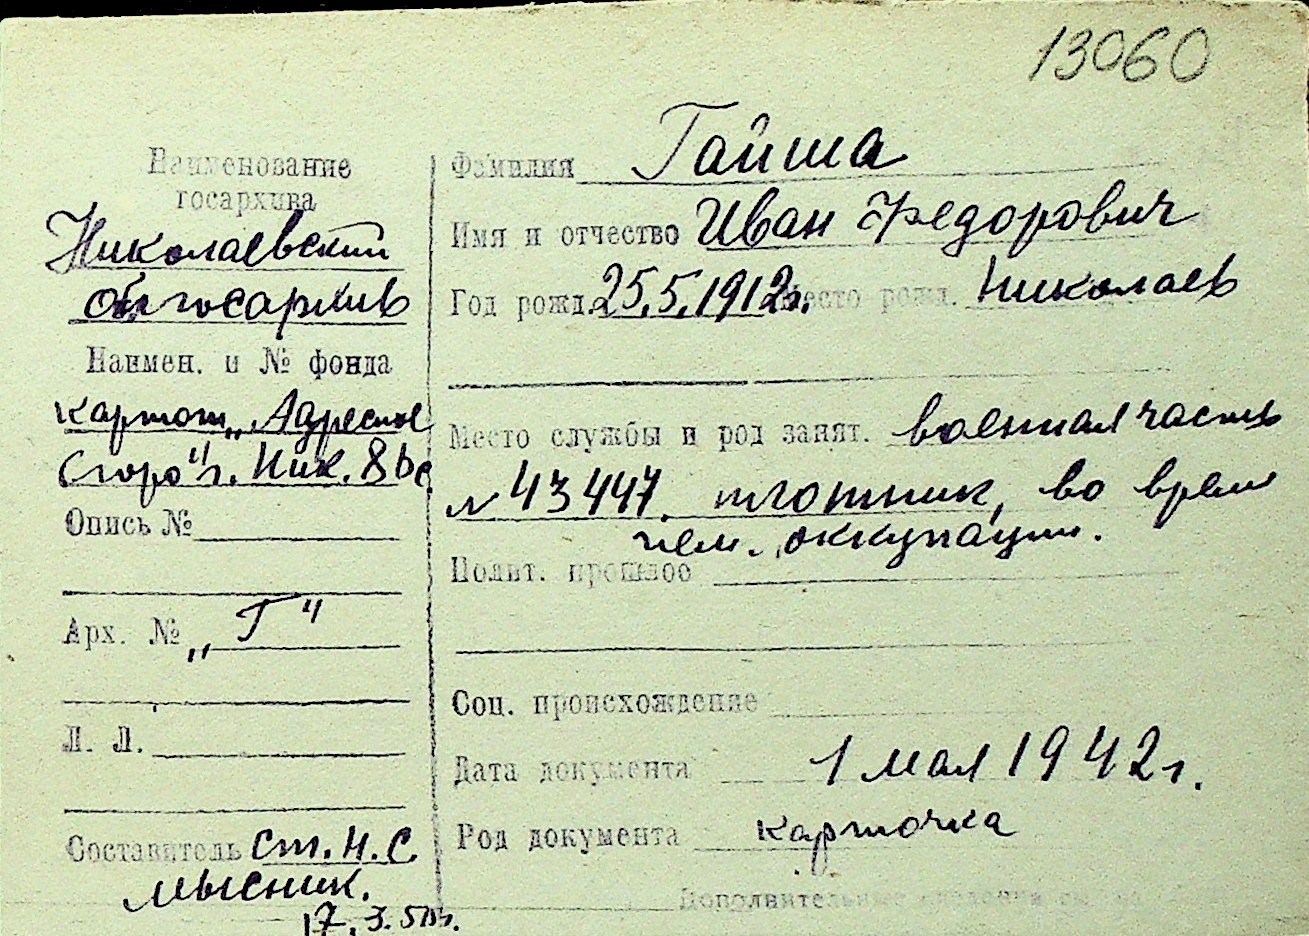 13060
Наименование
госархива
Николаевский
обл госархив
Наимен. и № фонда
картот. „Адресное
бюро" г. Ник.
Опись №
Арх. № „Г"
Л. Л.
Составитель ст. н. с.
Мысник.
17.3.
Фамилия Гайша
Имя и отчество Иван Федорович
Год рожд. 25.5.1912г. Место рожд. Николаев
Место службы и род занят. военная часть
№ 43447. плотник, во время
нем. оккупации.
Полит. прошлое
Соц. происхождение
Дата документа 1 мая 1942г.
Род документа карточка
Дополнительные сведения